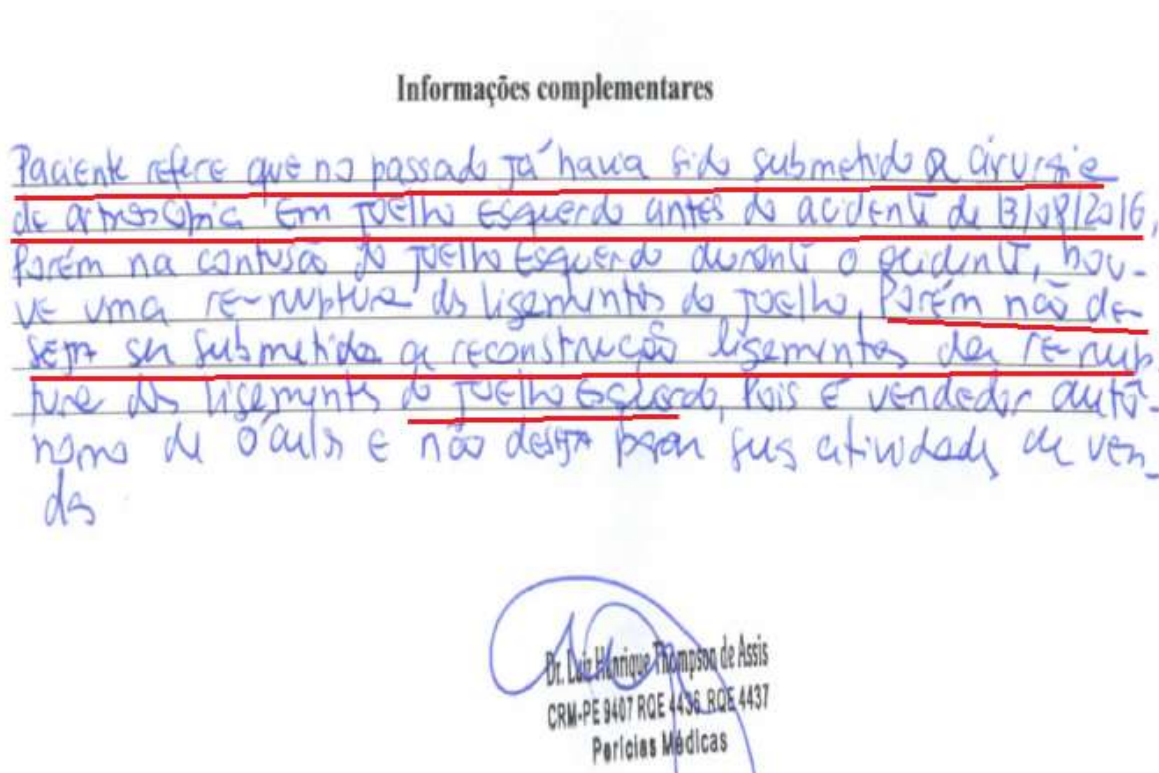 Informações complementares
Paciente refere que no passado já havia sido submetido a cirurgia
de artroscopia em joelho esquerdo antes do acidente de 13/08/2016,
Porém na contusão do joelho esquerdo durante o acidente, hou-
ve uma re-ruptura dos ligamentos do joelho. Porém não de-
seja ser submetido a reconstrução ligamentos da re-rup-
tura dos ligamentos do joelho esquerdo, Pois é vendedor autô-
nomo de óculos e não deseja parar suas atividades de ven-
das
Dr. Luiz Henrique Thompson de Assis
CRM-PE 9407 RQE 4436 RQE 4437
Perícias Médicas